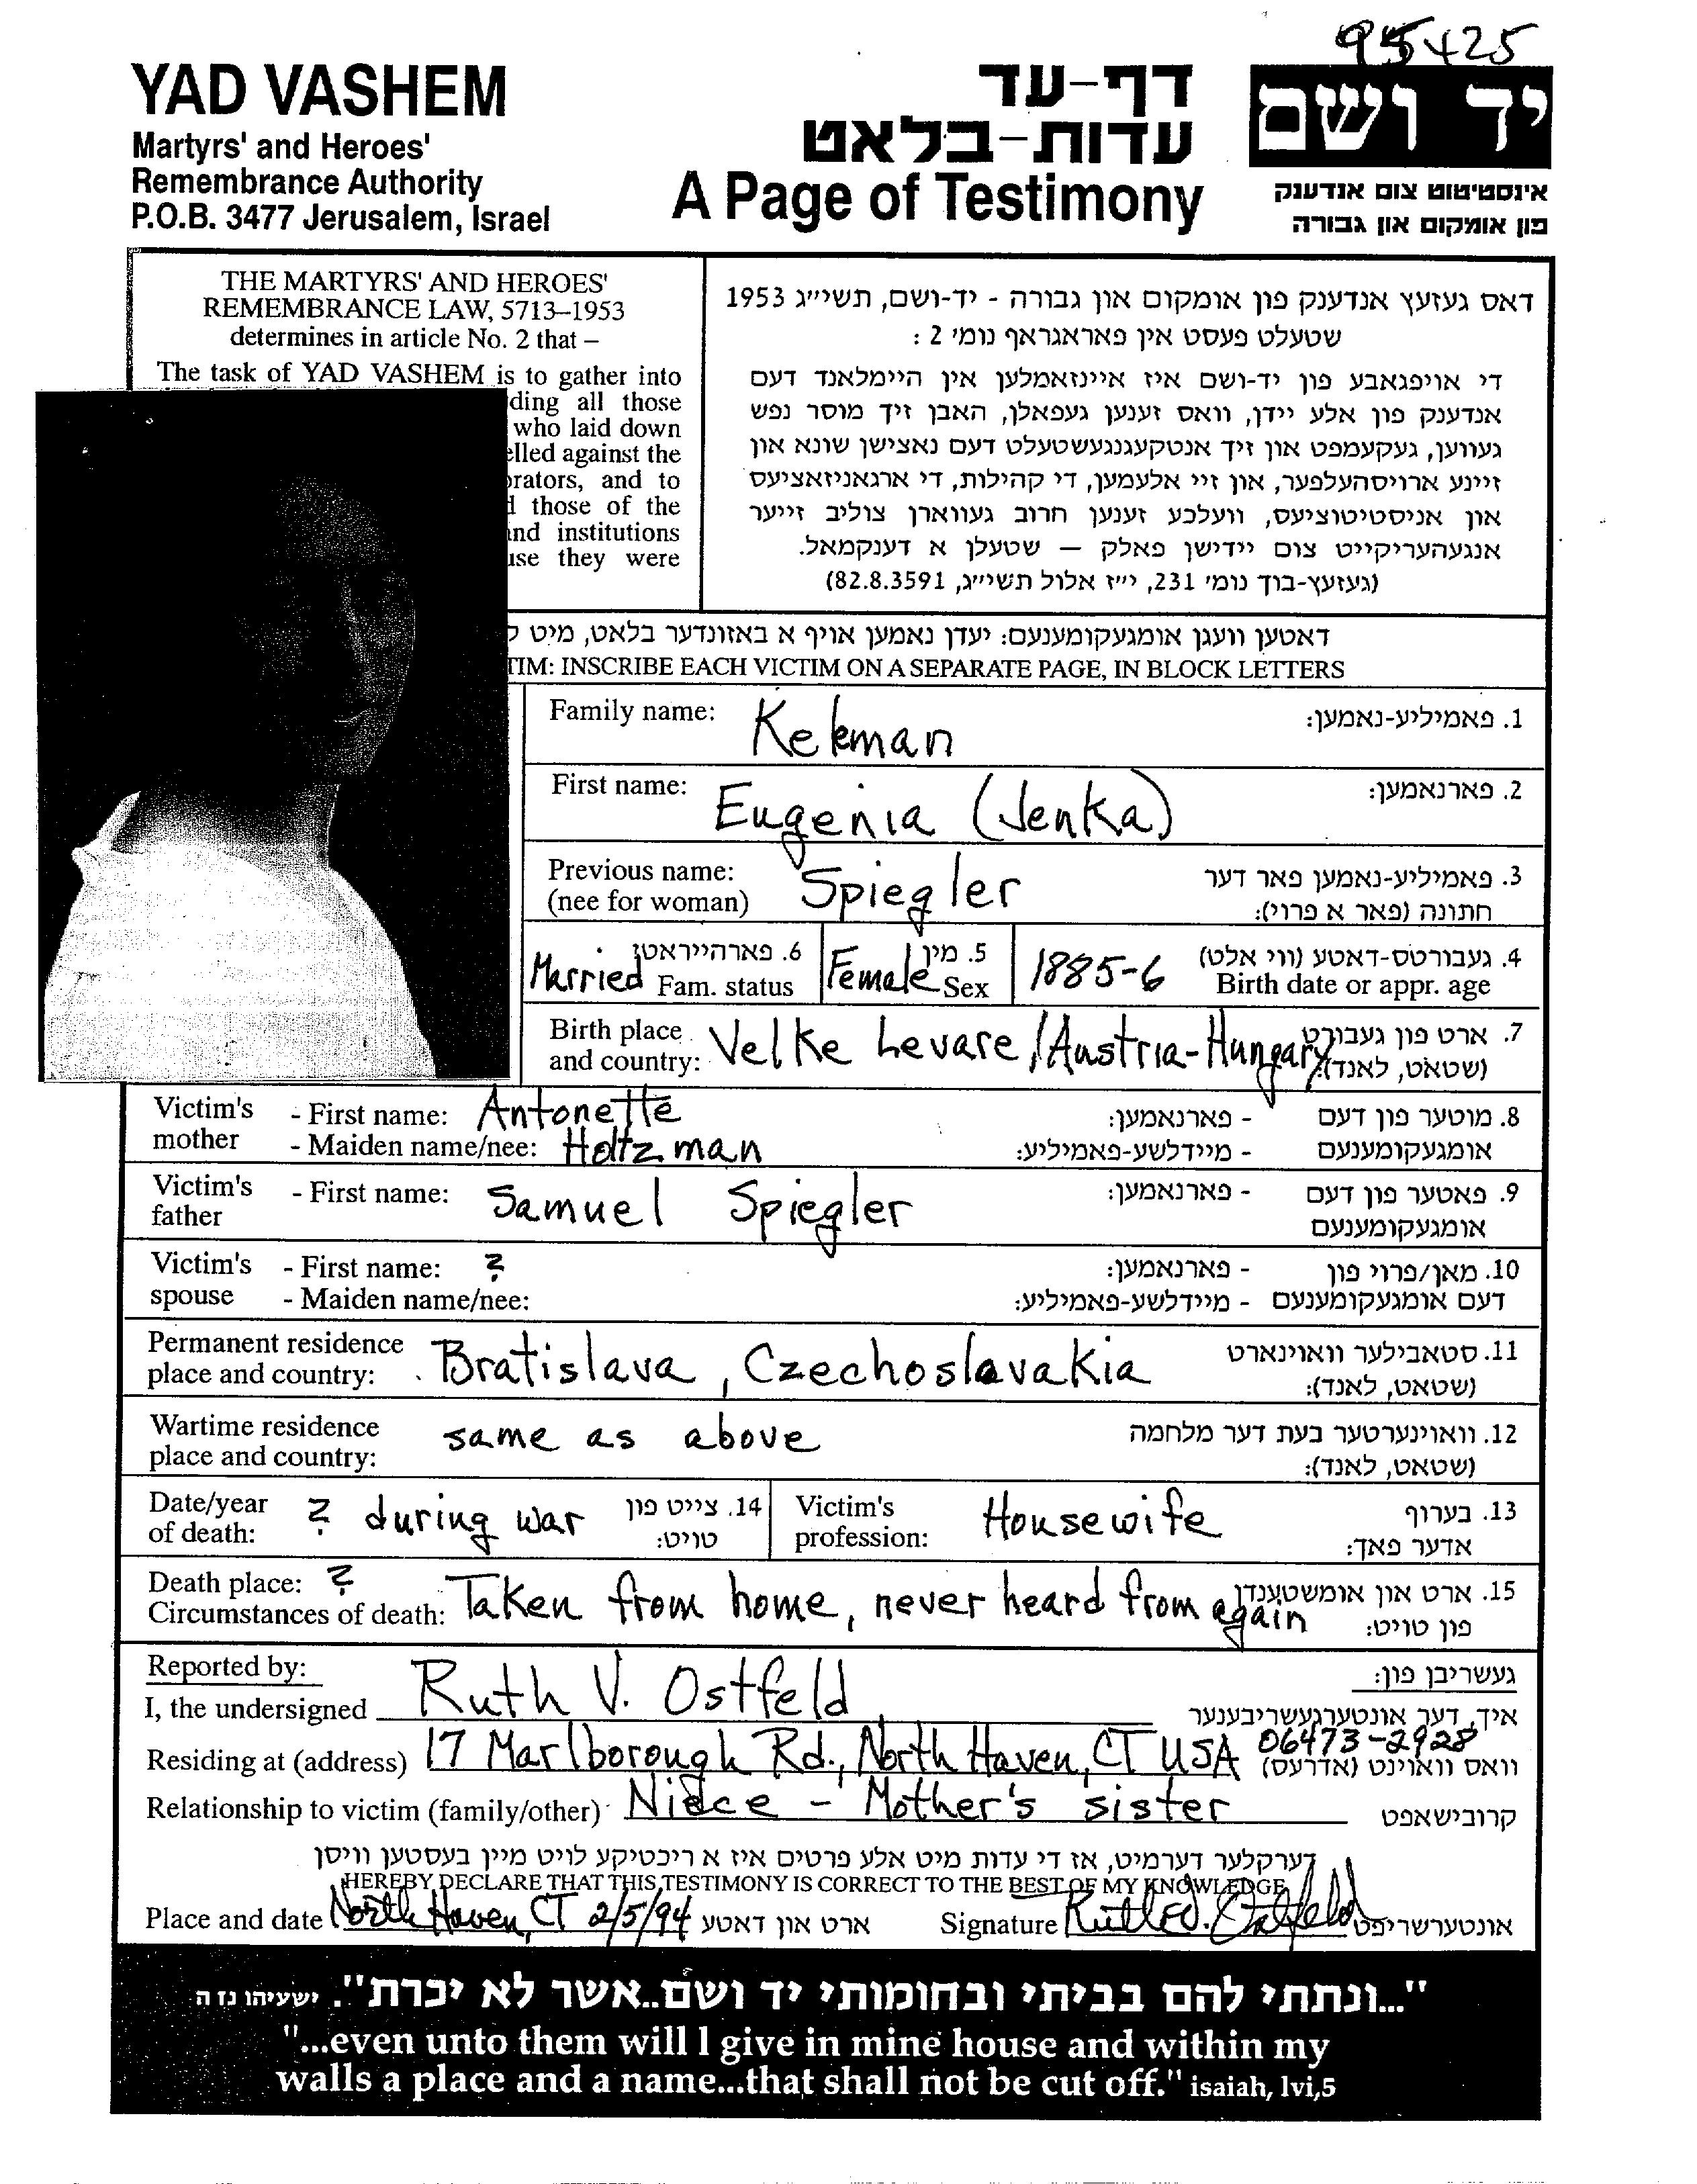 95425
YAD VASHEM
Martyrs' and Heroes'
Remembrance Authority
P.O.B. 3477 Jerusalem, Israel
דף-עד
עדות-בלאט
A Page of Testimony
יד ושם
אינסטיטוט צום אנדענק
פון אומקום און גבורה
THE MARTYRS' AND HEROES'
REMEMBRANCE LAW, 5713–1953
determines in article No. 2 that –
The task of YAD VASHEM is to gather into
ding all those
who laid down
elled against the
orators, and to
those of the
and institutions
use they were
דאס געזעץ אנדענק פון אומקום און גבורה - יד-ושם, תשי״ג 1953
שטעלט פעסט אין פאראגראף נומי 2 :
די אויפגאבע פון יד-ושם איז איינזאמלען אין היימלאנד דעם
אנדענק פון אלע יידן, וואס זענען געפאלן, האבן זיך מוסר נפש
געווען, געקעמפט און זיך אנטקעגנגעשטעלט דעם נאצישן שונא און
זיינע ארויסהעלפער, און זיי אלעמען, די קהילות, די ארגאניזאציעס
און אניסטיטוציעס, וועלכע זענען חרוב געווארן צוליב זייער
אנגעהעריקייט צום יידישן פאלק — שטעלן א דענקמאל.
(געזעץ-בוך נומי 231, י״ז אלול תשי״ג, 82.8.3591)
דאטען וועגן אומגעקומענעם: יעדן נאמען אויף א באזונדער בלאט, מיט
TIM: INSCRIBE EACH VICTIM ON A SEPARATE PAGE, IN BLOCK LETTERS
Family name: Kekman 1. פאמיליע-נאמען:
First name: Eugenia (Jenka) 2. פארנאמען:
Previous name:
(nee for woman) Spiegler 3. פאמיליע-נאמען פאר דער
חתונה (פאר א פרוי):
Married 6. פארהייראטן Fam. status Female 5. מין Sex 1885-6 4. געבורטס-דאטע (ווי אלט)
Birth date or appr. age
Birth place
and country: Velke Levare/Austria-Hungary 7. ארט פון געבורט
(שטאט, לאנד):
Victim's - First name: Antonette - פארנאמען: 8. מוטער פון דעם
mother - Maiden name/nee: Holtzman - מיידלשע-פאמיליע: אומגעקומענעם
Victim's - First name: Samuel Spiegler - פארנאמען: 9. פאטער פון דעם
father אומגעקומענעם
Victim's - First name: ? - פארנאמען: 10. מאן/פרוי פון
spouse - Maiden name/nee: - מיידלשע-פאמיליע: דעם אומגעקומענעם
Permanent residence
place and country: Bratislava, Czechoslovakia 11. סטאבילער וואוינארט
(שטאט, לאנד):
Wartime residence
place and country: same as above 12. וואוינערטער בעת דער מלחמה
(שטאט, לאנד):
Date/year
of death: ? during war 14. צייט פון
טויט:
Victim's
profession: Housewife 13. בערוף
אדער פאך:
Death place: ?
Circumstances of death: Taken from home, never heard from again 15. ארט און אומשטענדן
פון טויט:
Reported by: געשריבן פון:
I, the undersigned Ruth V. Ostfeld איך, דער אונטערגעשריבענער
Residing at (address) 17 Marlborough Rd., North Haven, CT USA 06473-2928 וואס וואוינט (אדרעס)
Relationship to victim (family/other) Niece - Mother's sister קרובישאפט
דערקלער דערמיט, אז די עדות מיט אלע פרטים איז א ריכטיקע לויט מיין בעסטען וויסן
HEREBY DECLARE THAT THIS TESTIMONY IS CORRECT TO THE BEST OF MY KNOWLEDGE
Place and date North Haven, CT 2/5/94 ארט און דאטע Signature Ruth V. Ostfeld אונטערשריפט
"...ונתתי להם בביתי ובחומותי יד ושם..אשר לא יכרת". ישעיהו נז ה
"...even unto them will I give in mine house and within my
walls a place and a name...that shall not be cut off." isaiah, lvi,5